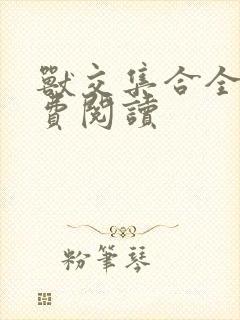 獸交集合全
費閱讀
粉筆琴